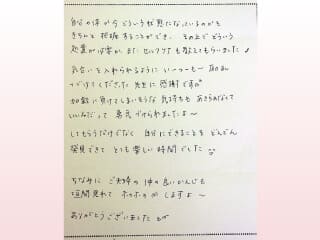 自分の体が今どういう状態になっているのかを
きちんと把握することができ、その上でどういう
処置が必要か、また セルフケアも教えてもらいました♪
気合いを入れられるように いーつーもー
つづけてくださった 先生に 感謝です
加齢に負けてしまいそうな 気持ちも あきらめなくて
いいんだって 勇気づけられましたよ〜
してもらうだけでなく 自分にできることを どんどん
発見できて とても楽しい時間でした
ちなみに ご夫婦の仲の良いかんじも
垣間見れて ホッホッが しますよ〜
ありがとうございました